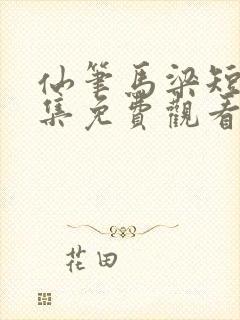 仙筆馬梁短
集免費觀看
花田